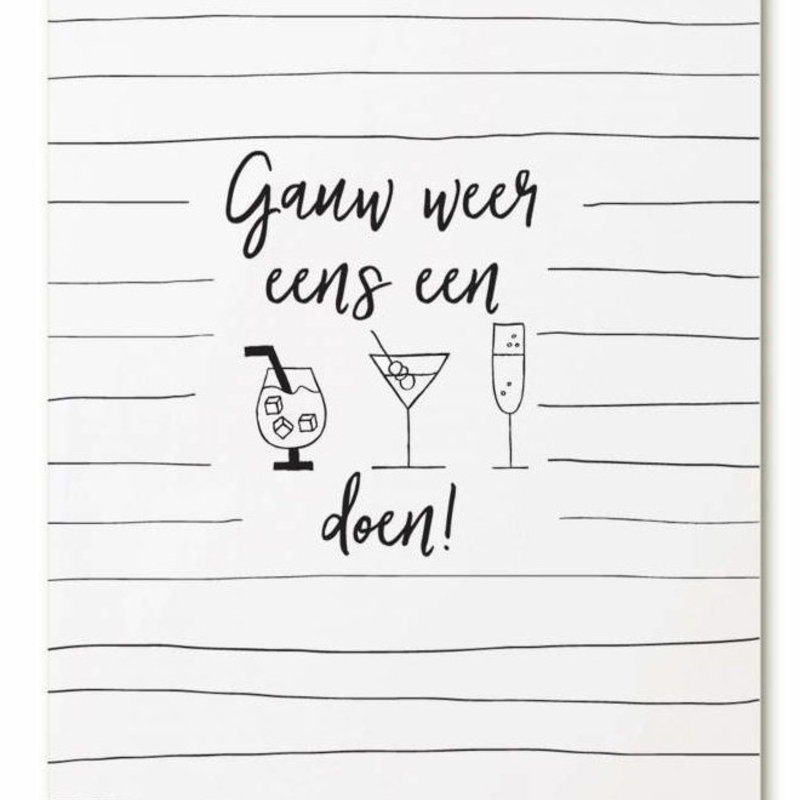 Gauw weer
eens een
doen!